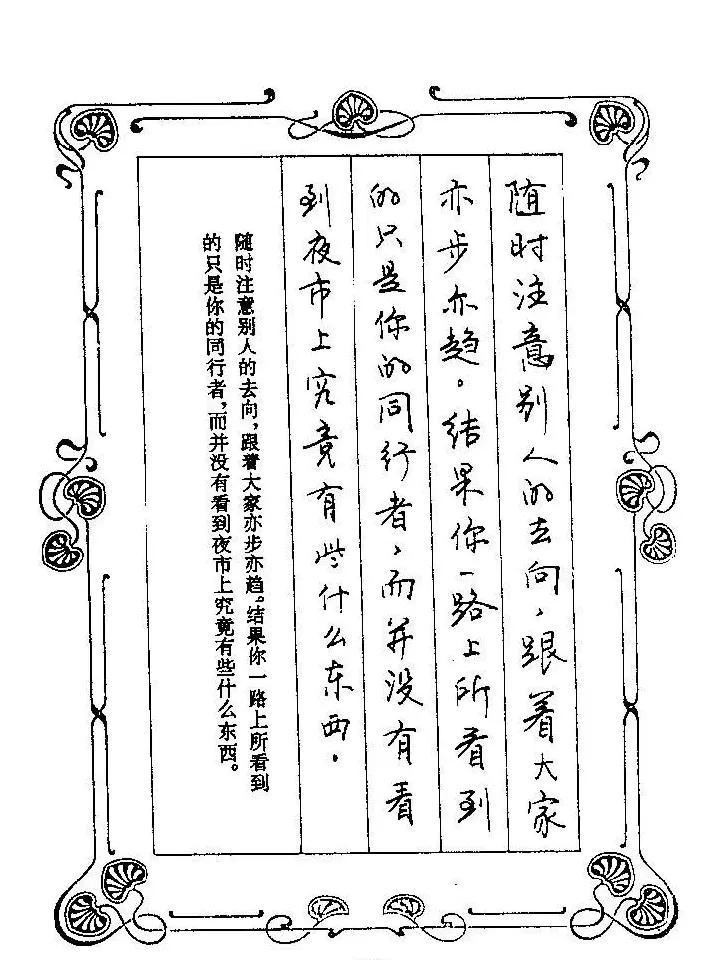 随时注意别人的去向，跟着大家
亦步亦趋。结果你一路上所看到
的只是你的同行者，而并没有看
到夜市上究竟有些什么东西。
随时注意别人的去向，跟着大家亦步亦趋。结果你一路上所看到
的只是你的同行者，而并没有看到夜市上究竟有些什么东西。